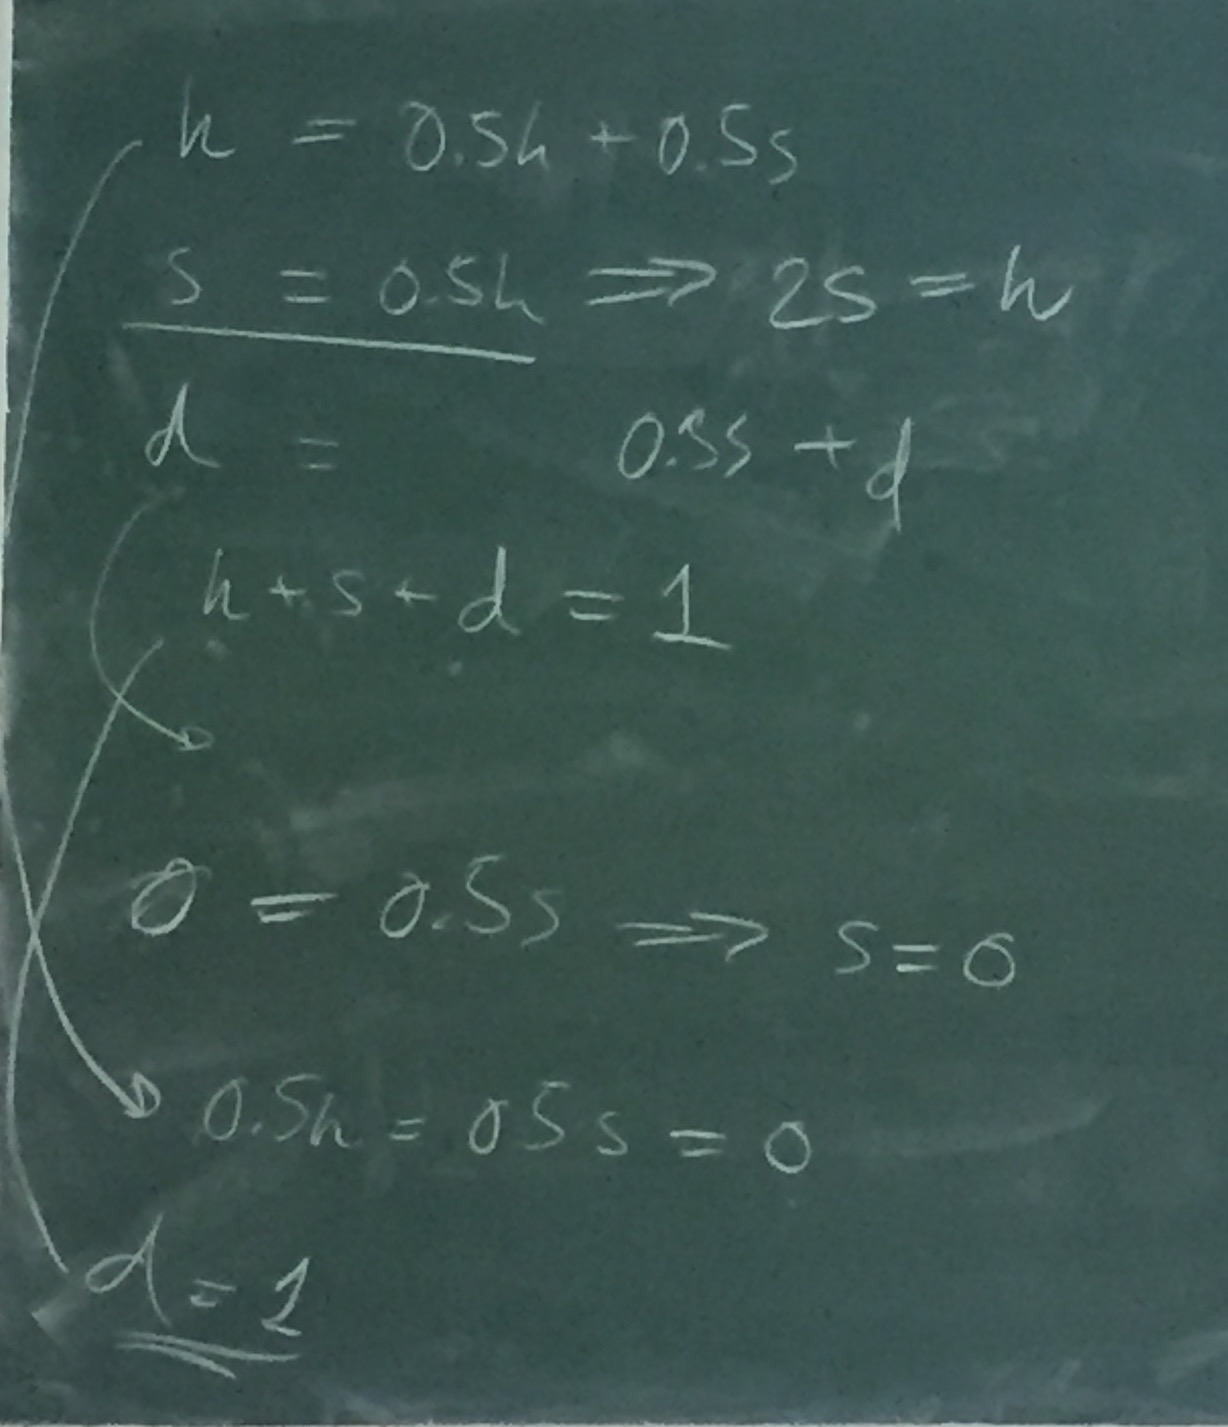 h = 0.5h + 0.5s
s = 0.5h ⇒ 2s = h
d = 0.5s + d
h + s + d = 1
0 = 0.5s ⇒ s = 0
0.5h = 05s = 0
d = 1